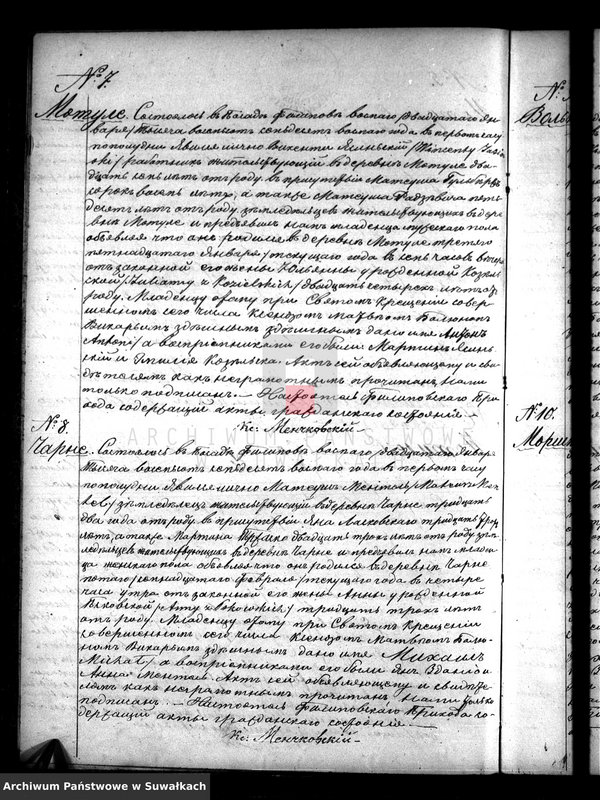 № 7.
Мотуле. Состоялось въ Посадѣ Филиповъ восьмаго /двадцатаго Ян-
варя/ тысяча восемьсотъ семьдесятъ восьмаго года въ первомъ часу
пополудни. Явился лично Викентій Ясинскій /Wincenty Jasiń-
ski/ работникъ жительствующій въ деревнѣ Мотуле два-
дцать семь лѣтъ отъ роду, въ присутствіи Матеуша
сорокъ восемь лѣтъ, а также Матеуша пять-
десятъ лѣтъ отъ роду, земледѣльцевъ жительствующихъ въ дерев-
нѣ Мотуле и предъявилъ намъ младенца мужескаго пола
объявляя что онъ родился въ деревнѣ Мотуле третьяго
/пятнадцатаго Января/ текущаго года въ семь часовъ
отъ законной его жены Юліанны урожденной Козѣль-
ской /Julianny z Kozielskich/ двадцать четырехъ лѣтъ отъ
роду. Младенцу этому при Святомъ Крещеніи совер-
шенномъ сего числа Ксендзомъ Матвѣемъ
Викаріемъ здѣшнымъ дано имя Антонъ
/Antoni/ а воспріемниками его были Мартинъ Ясинь-
скій и Эмилія Козѣльска. Актъ сей объявляющему и сви-
дѣтелямъ какъ неграмотнымъ прочитанъ нами
только подписанъ. — Настоятель Филиповскаго При-
хода содержащій акты гражданскаго состоянія. —
Кс: Менчковскій
№ 8.
Чарне. Состоялось въ Посадѣ Филиповъ восьмаго /двадцатаго Января/
тысяча восемьсотъ семьдесятъ восьмаго года въ первомъ часу
пополудни. Явился лично Матеушъ
земледѣлецъ жительствующій въ деревнѣ Чарне тридцать
два года отъ роду, въ присутствіи Яна Лясковскаго тридцать
лѣтъ, а также Мартина двадцать трехъ лѣтъ отъ роду, зем-
ледѣльцевъ жительствующихъ въ деревнѣ Чарне и предъявилъ намъ младен-
ца женскаго пола объявляя что онъ родился въ деревнѣ Чарне
пятаго /семнадцатаго Февраля/ текущаго года въ четыре
часа утра отъ законной его жены Анны урожденной
тридцать трехъ лѣтъ
отъ роду. Младенцу этому при Святомъ Крещеніи
совершенномъ сего числа Ксендзомъ Матвѣемъ
Викаріемъ здѣшнымъ дано имя Михаилъ
/Michał/ а воспріемниками его были Янъ и
Анна. Актъ сей объявляющему и свидѣте-
лямъ какъ неграмотнымъ прочитанъ нами только
подписанъ. — Настоятель Филиповскаго Прихода со-
держащій акты гражданскаго состоянія —
Кс: Менчковскій
№ 10.
ARCHIWUM PAŃSTWOWE
Archiwum Państwowe w Suwałkach